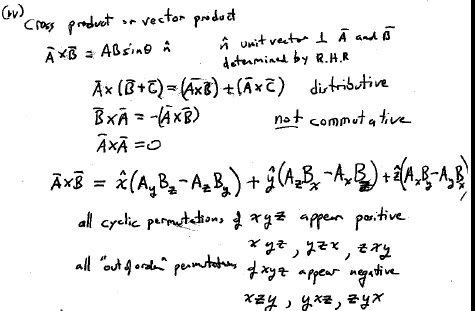 (iv) Cross product or vector product
Ā×B̄ = AB sinθ n̂    n̂ unit vector ⊥ Ā and B̄
determined by R.H.R
Ā×(B̄+C̄)=(Ā×B̄)+(Ā×C̄) distributive
B̄×Ā = -(Ā×B̄) not commutative
Ā×Ā=0
Ā×B̄ = x̂(A_yB_z-A_zB_y) + ŷ(A_zB_x-A_xB_z)+ẑ(A_xB_y-A_yB_x)
all cyclic permutations of xyz appear positive
xyz, yzx, zxy
all "out of order" permutations of xyz appear negative
xzy, yxz, zyx